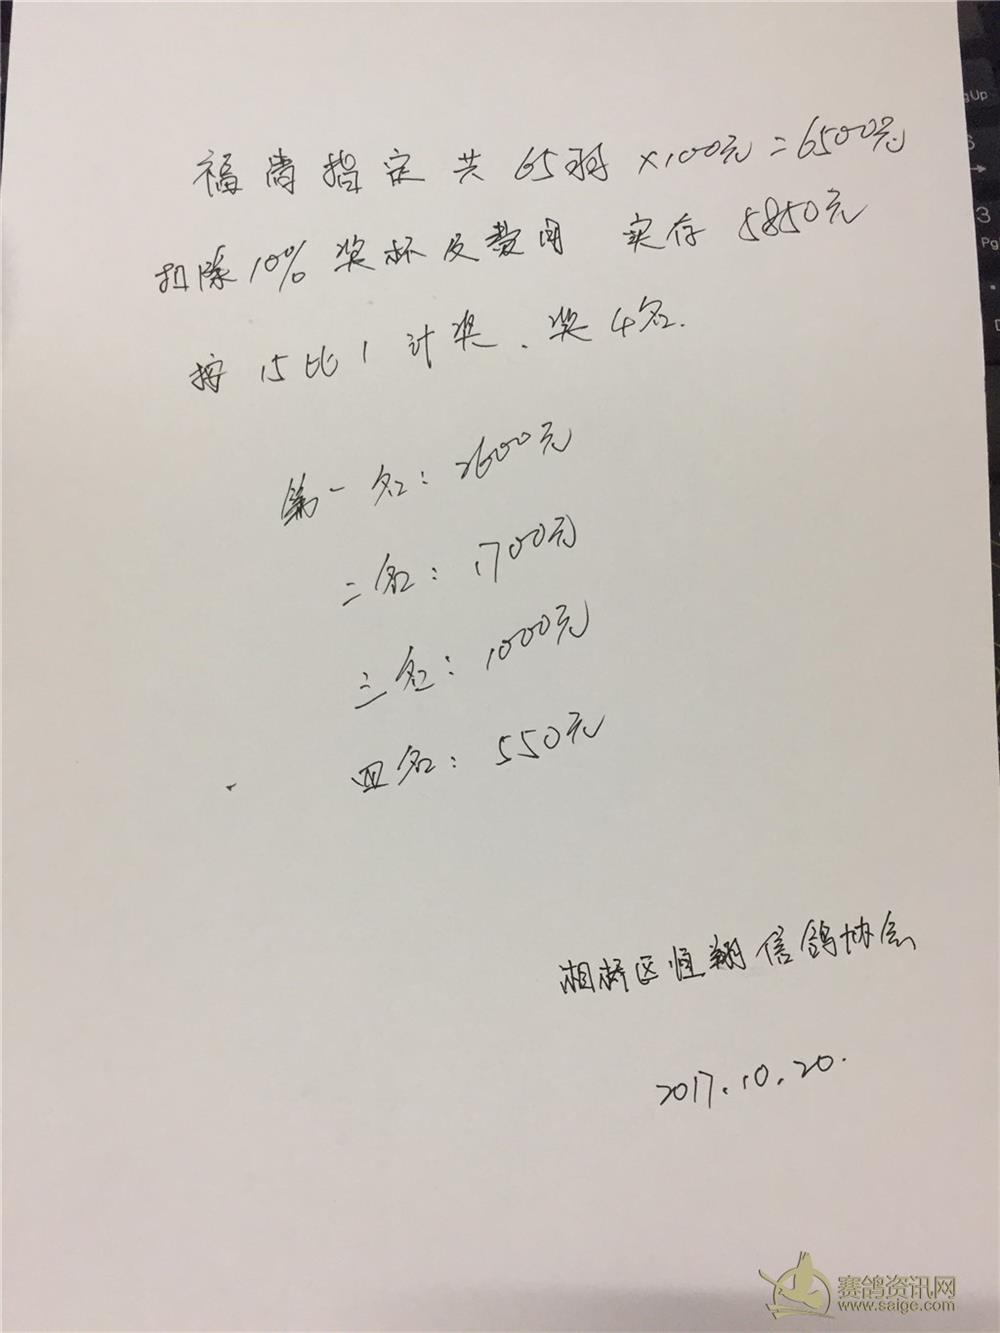 福清指定共65羽×100元=6500元
扣除10%奖杯及费用 实存5850元
按15比1计奖、奖4名.
第一名:2600元
二名:1700元
三名:1000元
四名:550元
湘桥区恒翔信鸽协会
2017.10.20.
赛鸽资讯网
www.saige.com
gUp
6
→
3
Pg